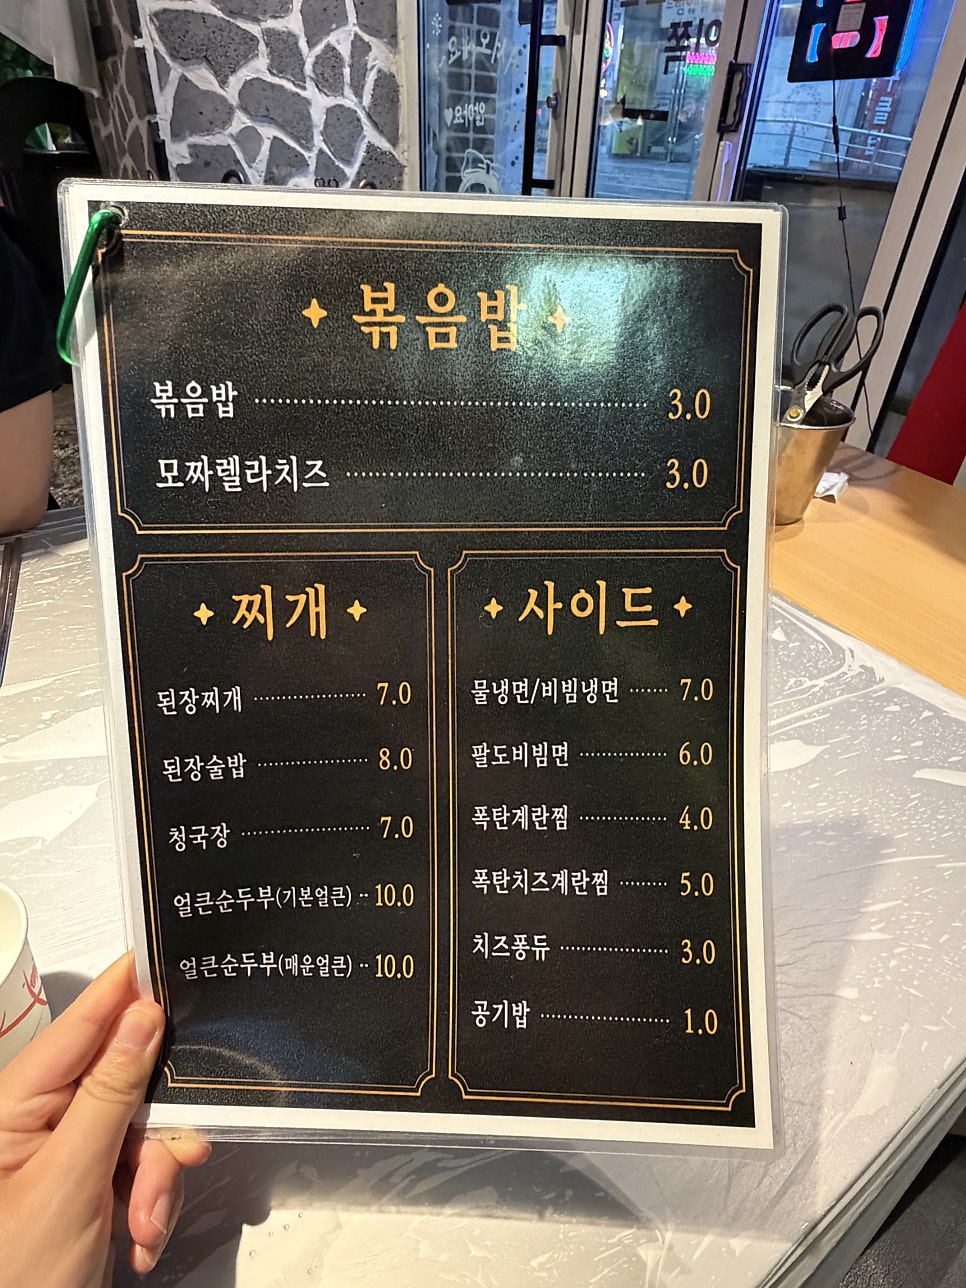 이쪽
볶음밥
볶음밥 3.0
모짜렐라치즈 3.0
찌개
된장찌개 7.0
된장술밥 8.0
청국장 7.0
얼큰순두부(기본얼큰) 10.0
얼큰순두부(매운얼큰) 10.0
사이드
물냉면/비빔냉면 7.0
팔도비빔면 6.0
폭탄계란찜 4.0
폭탄치즈계란찜 5.0
치즈퐁듀 3.0
공기밥 1.0